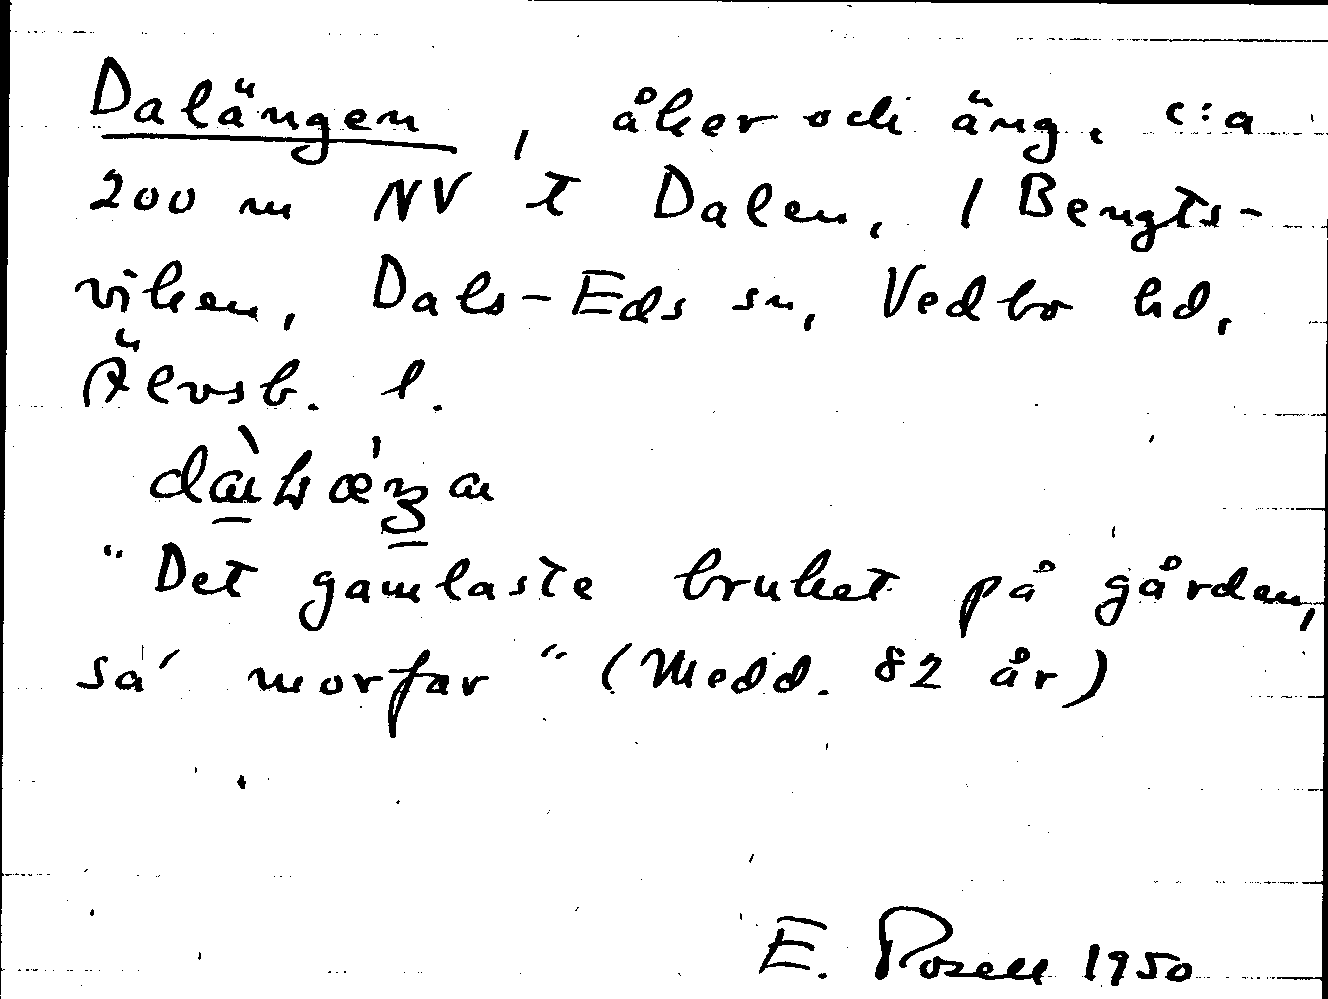 Dalängen, åker och äng, c:a
200 m NV t Dalen, 1 Bengts-
viken, Dals-Eds sn, Vedbo hd,
Älvsb. l.
"Det gamlaste bruket på gården,
sa' morfar" (Medd. 82 år)
E. Rosell 1950